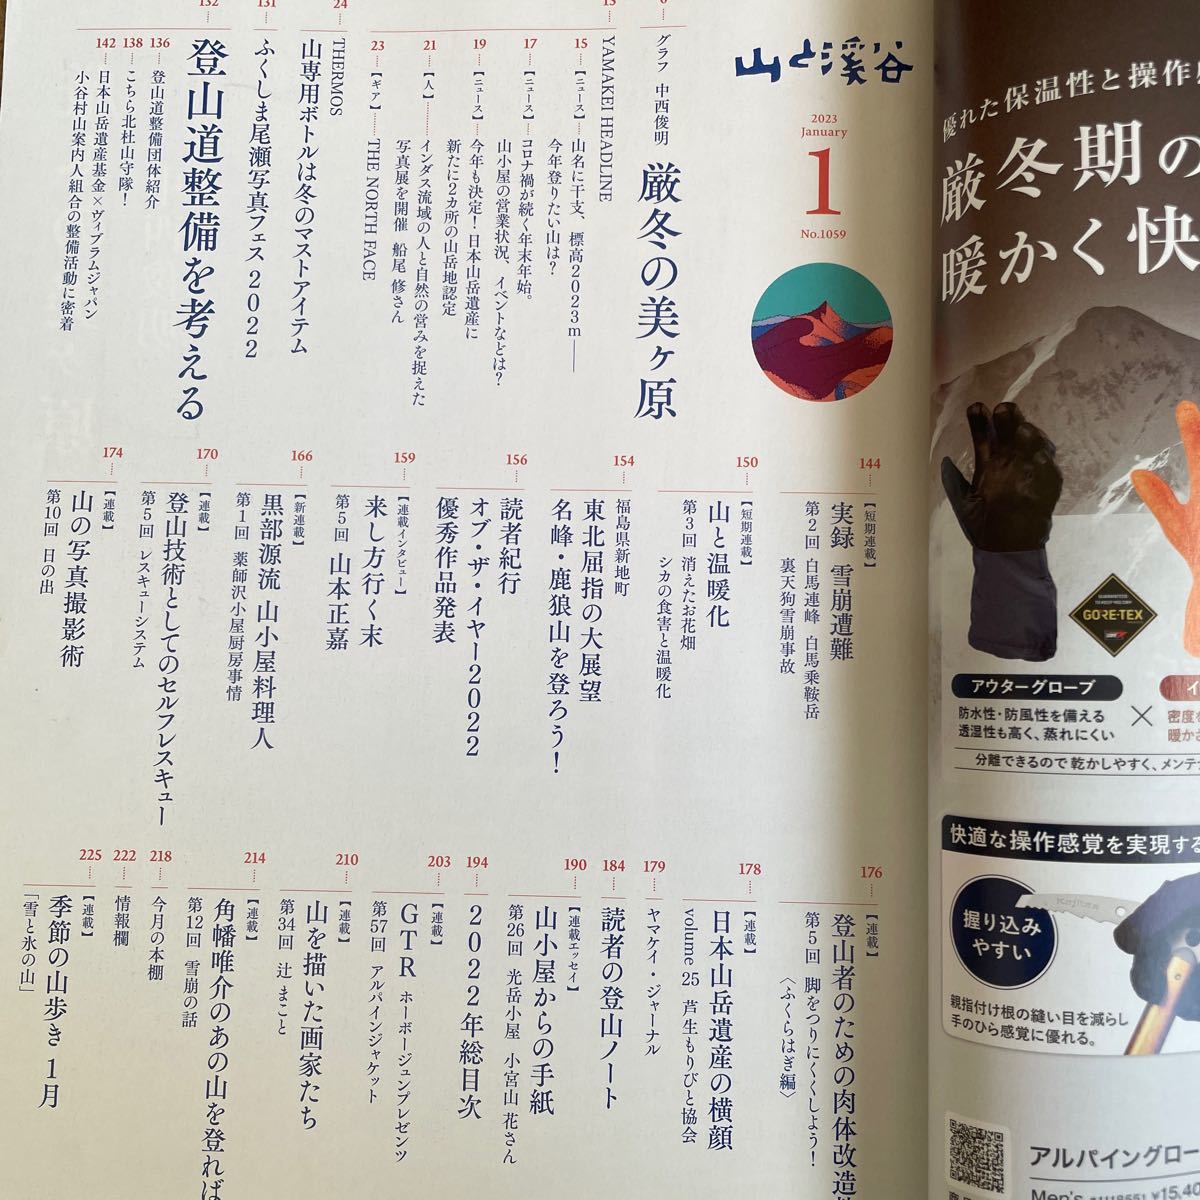 山と溪谷
2023
January
1
No.1059
6
グラフ 中西俊明
厳冬の美ヶ原
13
YAMAKEI HEADLINE
15
【ニュース】
山名に干支、標高2023m——
今年登りたい山は?
17
【ニュース】
コロナ禍が続く年末年始。
山小屋の営業状況、イベントなどは?
19
【ニュース】
今年も決定!日本山岳遺産に
新たに2カ所の山岳地認定
21
【人】
インダス流域の人と自然の営みを捉えた
写真展を開催 船尾 修さん
23
【ギア】
THE NORTH FACE
24
THERMOS
山専用ボトルは冬のマストアイテム
131
ふくしま尾瀬写真フェス2022
132
登山道整備を考える
136
登山道整備団体紹介
138
こちら北杜山守隊!
142
日本山岳遺産基金×ヴィブラムジャパン
小谷村山案内人組合の整備活動に密着
144
【短期連載】
実録 雪崩遭難
第2回 白馬連峰 白馬乗鞍岳
裏天狗雪崩事故
150
【短期連載】
山と温暖化
第3回 消えたお花畑
シカの食害と温暖化
154
福島県新地町
東北屈指の大展望
名峰・鹿狼山を登ろう!
156
読者紀行
オブ・ザ・イヤー2022
優秀作品発表
159
【連載インタビュー】
来し方行く末
第5回 山本正嘉
166
【新連載】
黒部源流 山小屋料理人
第1回 薬師沢小屋厨房事情
170
【連載】
登山技術としてのセルフレスキュー
第5回 レスキューシステム
174
【連載】
山の写真撮影術
第10回 日の出
176
【連載】
登山者のための肉体改造
第5回 脚をつりにくくしよう!
〈ふくらはぎ編〉
178
【連載】
日本山岳遺産の横顔
volume 25 芦生もりびと協会
179
ヤマケイ・ジャーナル
184
読者の登山ノート
190
【連載エッセイ】
山小屋からの手紙
第26回 光岳小屋 小宮山 花さん
194
2022年総目次
203
【連載】
GTR ホーボージュンプレゼンツ
第57回 アルパインジャケット
210
【連載】
山を描いた画家たち
第34回 辻 まこと
214
【連載】
角幡唯介のあの山を登れば
第12回 雪崩の話
218
今月の本棚
222
情報欄
225
【連載】
季節の山歩き 1月
「雪と氷の山」
優れた保温性と操作
厳冬期の
暖かく快
GORE-TEX
アウターグローブ
防水性・防風性を備える
透湿性も高く、蒸れにくい
×
密度
暖かさ
分離できるので乾かしやすく、メンテ
快適な操作感覚を実現する
握り込み
やすい
親指付け根の縫い目を減らし
手のひら感覚に優れる。
アルパインクロー
Men's